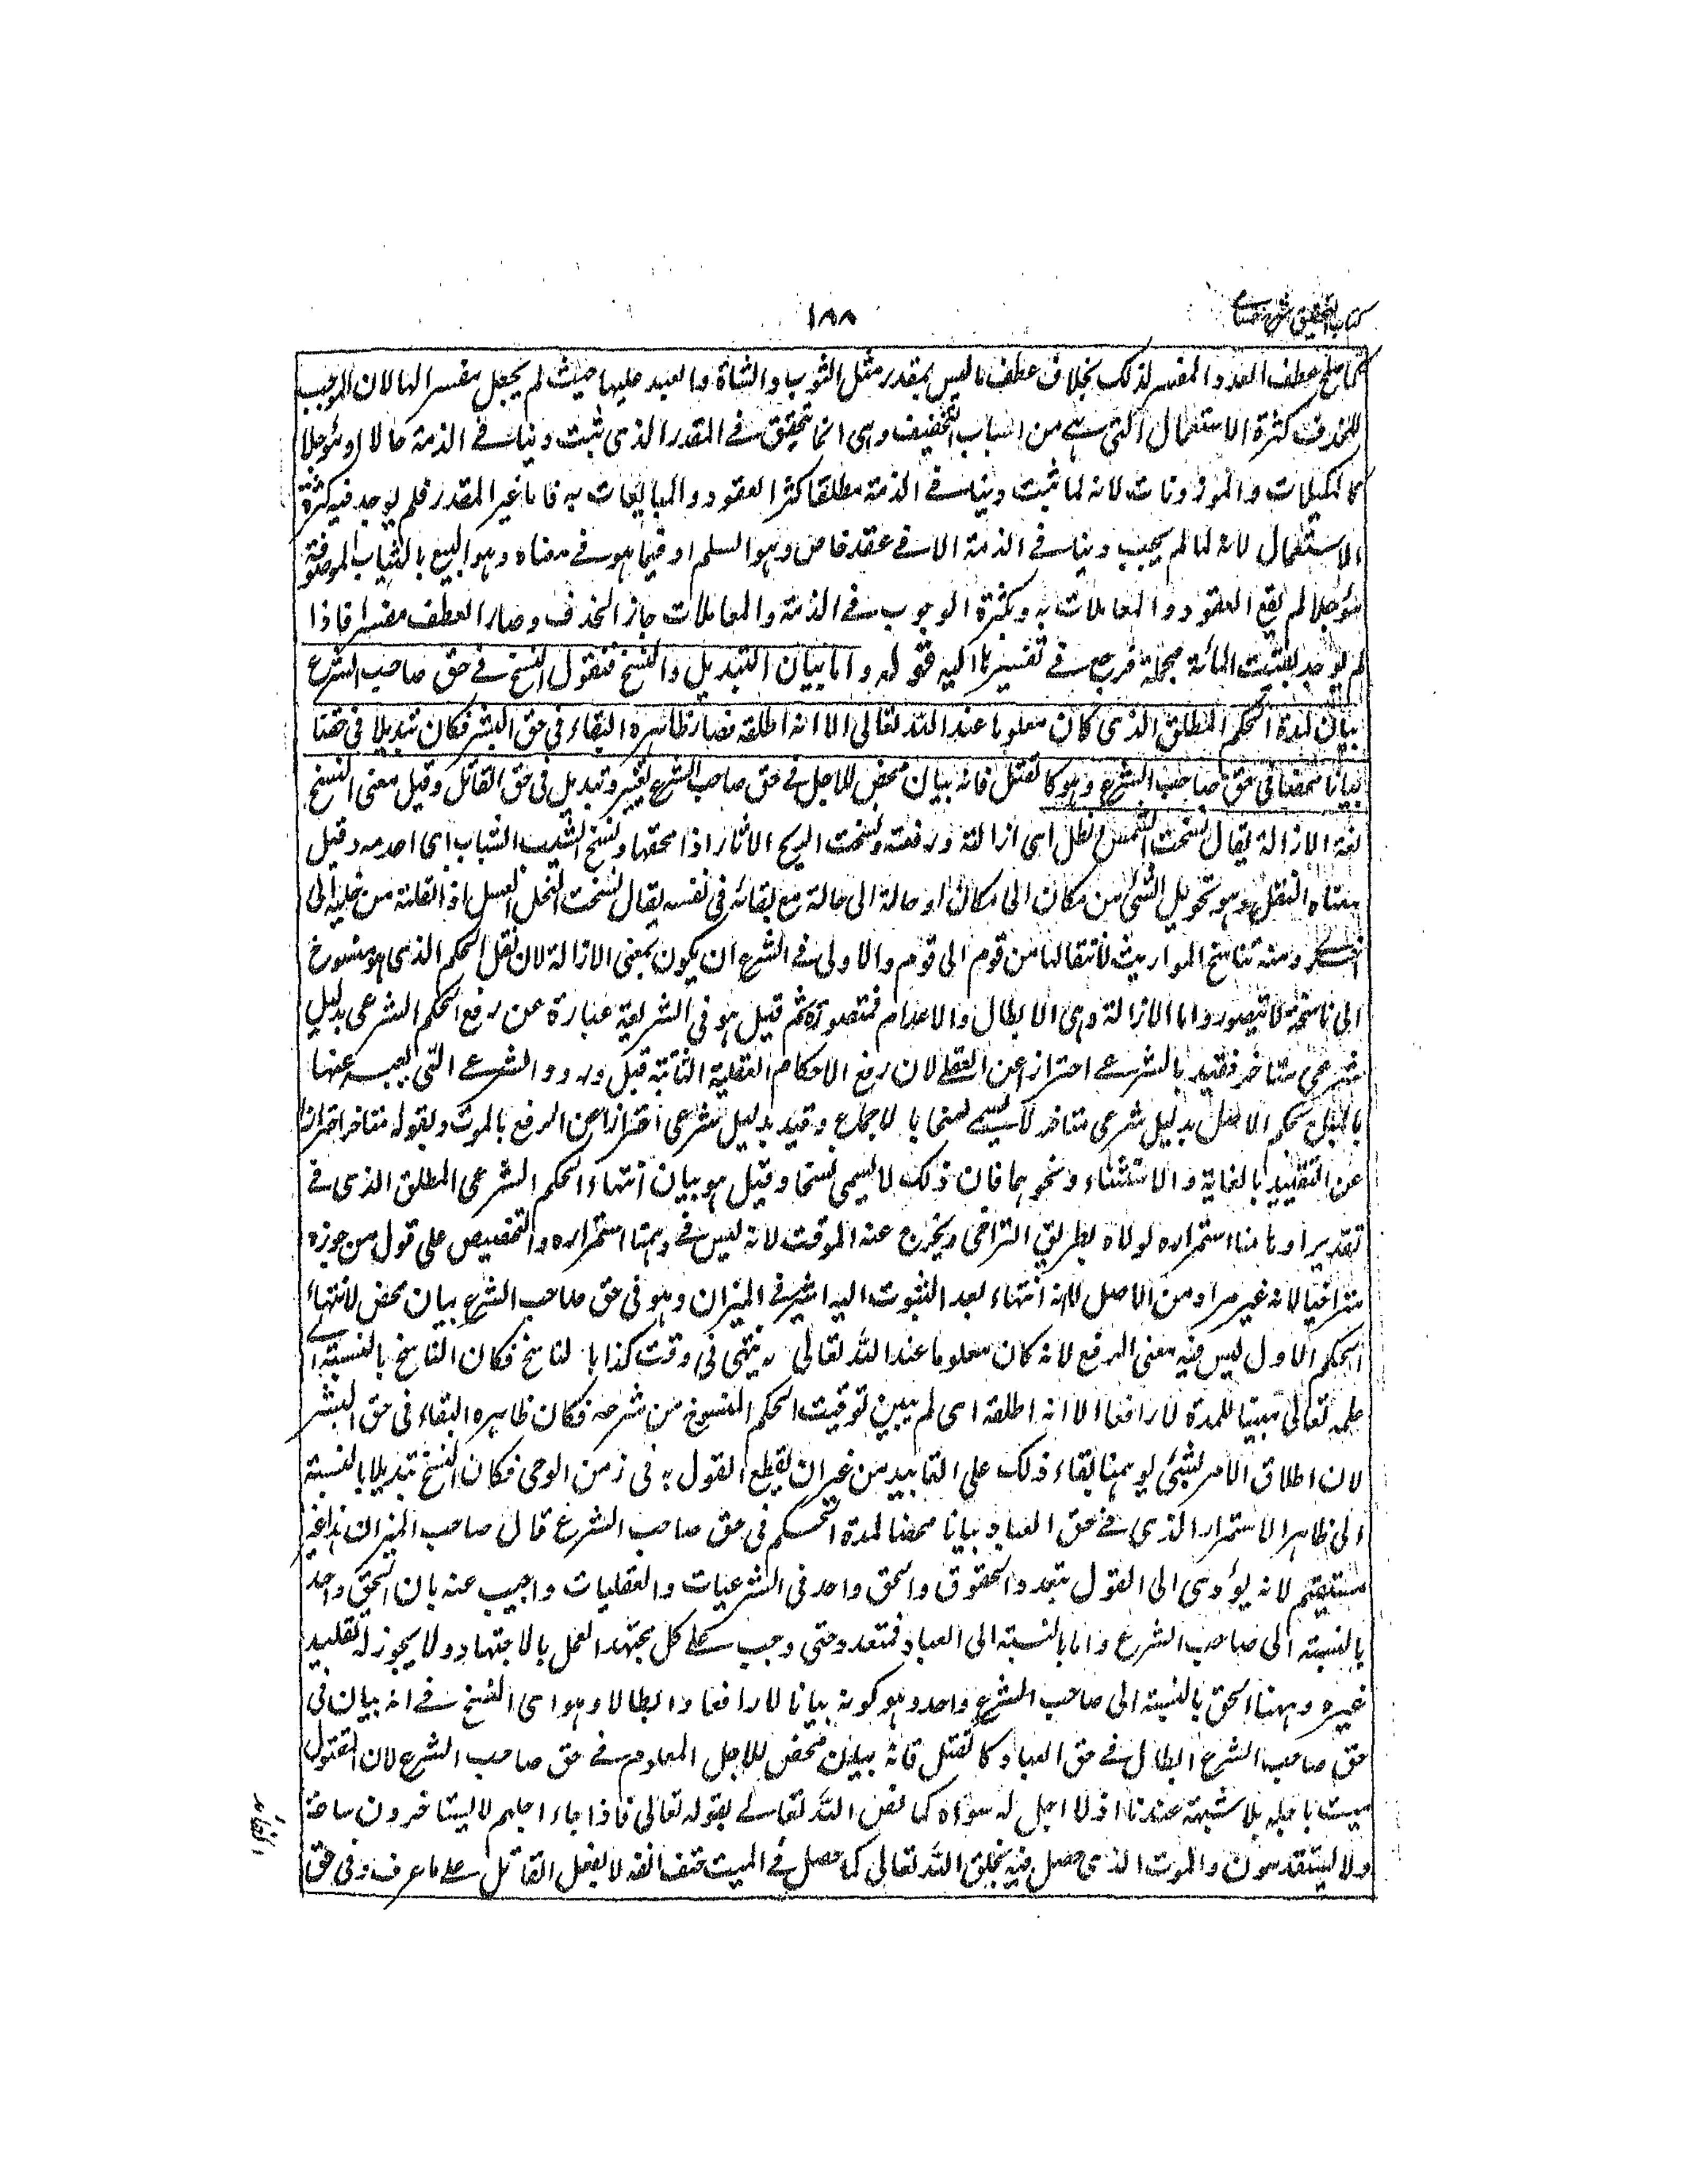 كتاب التحقيق شرح حسامي
١٨٨
كما صلح عطف العدد المفسر لذلك بخلاف عطف ما ليس بمقدر مثل الثوب والشاة والعبد عليها حيث لم يجعل مفسرا لها لان الموجب
للحذف كثرة الاستعمال التي هي من اسباب التخفيف وهي انما تتحقق في المقدر الذي يثبت دينا في الذمة حالا او مؤجلا
كالمكيلات والموزونات لانه لما ثبت دينا في الذمة مطلقا كثر العقود والمبايعات به فاما غير المقدر فلم يوجد فيه كثرة
الاستعمال لانه لما لم يجب دينا في الذمة الا في عقد خاص وهو السلم او فيما هو في معناه وهو البيع بالثياب الموصوفة
مؤجلا لم يقع العقود والمعاملات به وبكثرة الوجوب في الذمة والمعاملات جاز الحذف وصار العطف مفسرا فاذا
لم يوجد بقيت المائة مجملة فرجع في تفسيرها اليه قوله واما بيان التبديل والنسخ فنقول النسخ في حق صاحب الشرع
بيان لمدة الحكم المطلق الذي كان معلوما عند الله تعالى الا انه اطلقه فصار ظاهره البقاء في حق البشر فكان تبديلا في حقنا
بيانا محضا في حق صاحب الشرع وهو كالقتل فانه بيان محض للاجل في حق صاحب الشرع تغيير وتبديل في حق القاتل وقيل معنى النسخ
لغة الازالة يقال نسخت الشمس الظل اي ازالته ورفعته ونسخت الريح الآثار اذا محقتها ونسخ الشيب الشباب اي اعدمه وقيل
معناه النقل وهو تحويل الشئ من مكان الى مكان او حالة الى حالة مع بقائه في نفسه يقال نسخت النحل العسل اذا نقلته من خلية الى
اخرى ومنه تناسخ المواريث لانتقالها من قوم الى قوم والاولى في الشرع ان يكون بمعنى الازالة لان نقل الحكم الذي هو منسوخ
الى ناسخه لا يتصور واما الازالة وهي الابطال والاعدام فمتصورة ثم قيل هو في الشريعة عبارة عن رفع الحكم الشرعي بدليل
شرعي متاخر فقيد بالشرعي احترازا عن العقلي لان رفع الاحكام العقلية الثابتة قبل ورود الشرع التي يعبر عنها
بالبقاء بحكم الاصل بدليل شرعي متاخر لا يسمى نسخا بالاجماع وقيد بدليل شرعي احترازا عن الرفع بالموت وبقوله متاخر احترازا
عن التقييد بالغاية والاستثناء ونحوهما فان ذلك لا يسمى نسخا وقيل هو بيان انتهاء الحكم الشرعي المطلق الذي في
تقدير اوهامنا استمراره لولاه بطريق التراخي ويخرج عنه الموقت لانه ليس في وهمنا استمراره والتخصيص على قول من جوزه
متراخيا لانه غير مراد من الاصل لا انه انتهاء بعد الثبوت اليه اشير في الميزان وهو في حق صاحب الشرع بيان محض لانتهاء
الحكم الاول ليس فيه معنى الرفع لانه كان معلوما عند الله تعالى انه ينتهي في وقت كذا بالناسخ فكان الناسخ بالنسبة الى
علمه تعالى مبينا للمدة لا رافعا الا انه اطلقه اي لم يبين توقيت الحكم المنسوخ من شرعه فكان ظاهره البقاء في حق البشر
لان اطلاق الامر بشئ يوهمنا بقاء ذلك على التابيد من غير ان يقطع القول به في زمن الوحي فكان النسخ تبديلا بالنسبة
الى ظاهر الاستمرار الذي في حق العباد بيانا محضا لمدة الحكم في حق صاحب الشرع قال صاحب الميزان هذا غير
مستقيم لانه يؤدي الى القول بتعدد الحقوق والحق واحد في الشرعيات والعقليات واجيب عنه بان الحق واحد
بالنسبة الى صاحب الشرع واما بالنسبة الى العباد فمتعدد حتى وجب على كل مجتهد العمل بالاجتهاد ولا يجوز له تقليد
غيره وههنا الحق بالنسبة الى صاحب الشرع واحد وهو كونه بيانا لا رافعا وابطالا وهو اي النسخ في انه بيان في
حق صاحب الشرع ابطال في حق العباد كالقتل فانه بيان محض للاجل المعلوم في حق صاحب الشرع لان المقتول
ميت باجله بلا شبهة عندنا اذ لا اجل له سواه كما نص الله تعالى بقوله تعالى فاذا جاء اجلهم لا يستاخرون ساعة
ولا يستقدمون والموت الذي حصل فيه بخلق الله تعالى كما حصل في الميت حتف انفه لا بفعل القاتل على ما عرف وفي حق